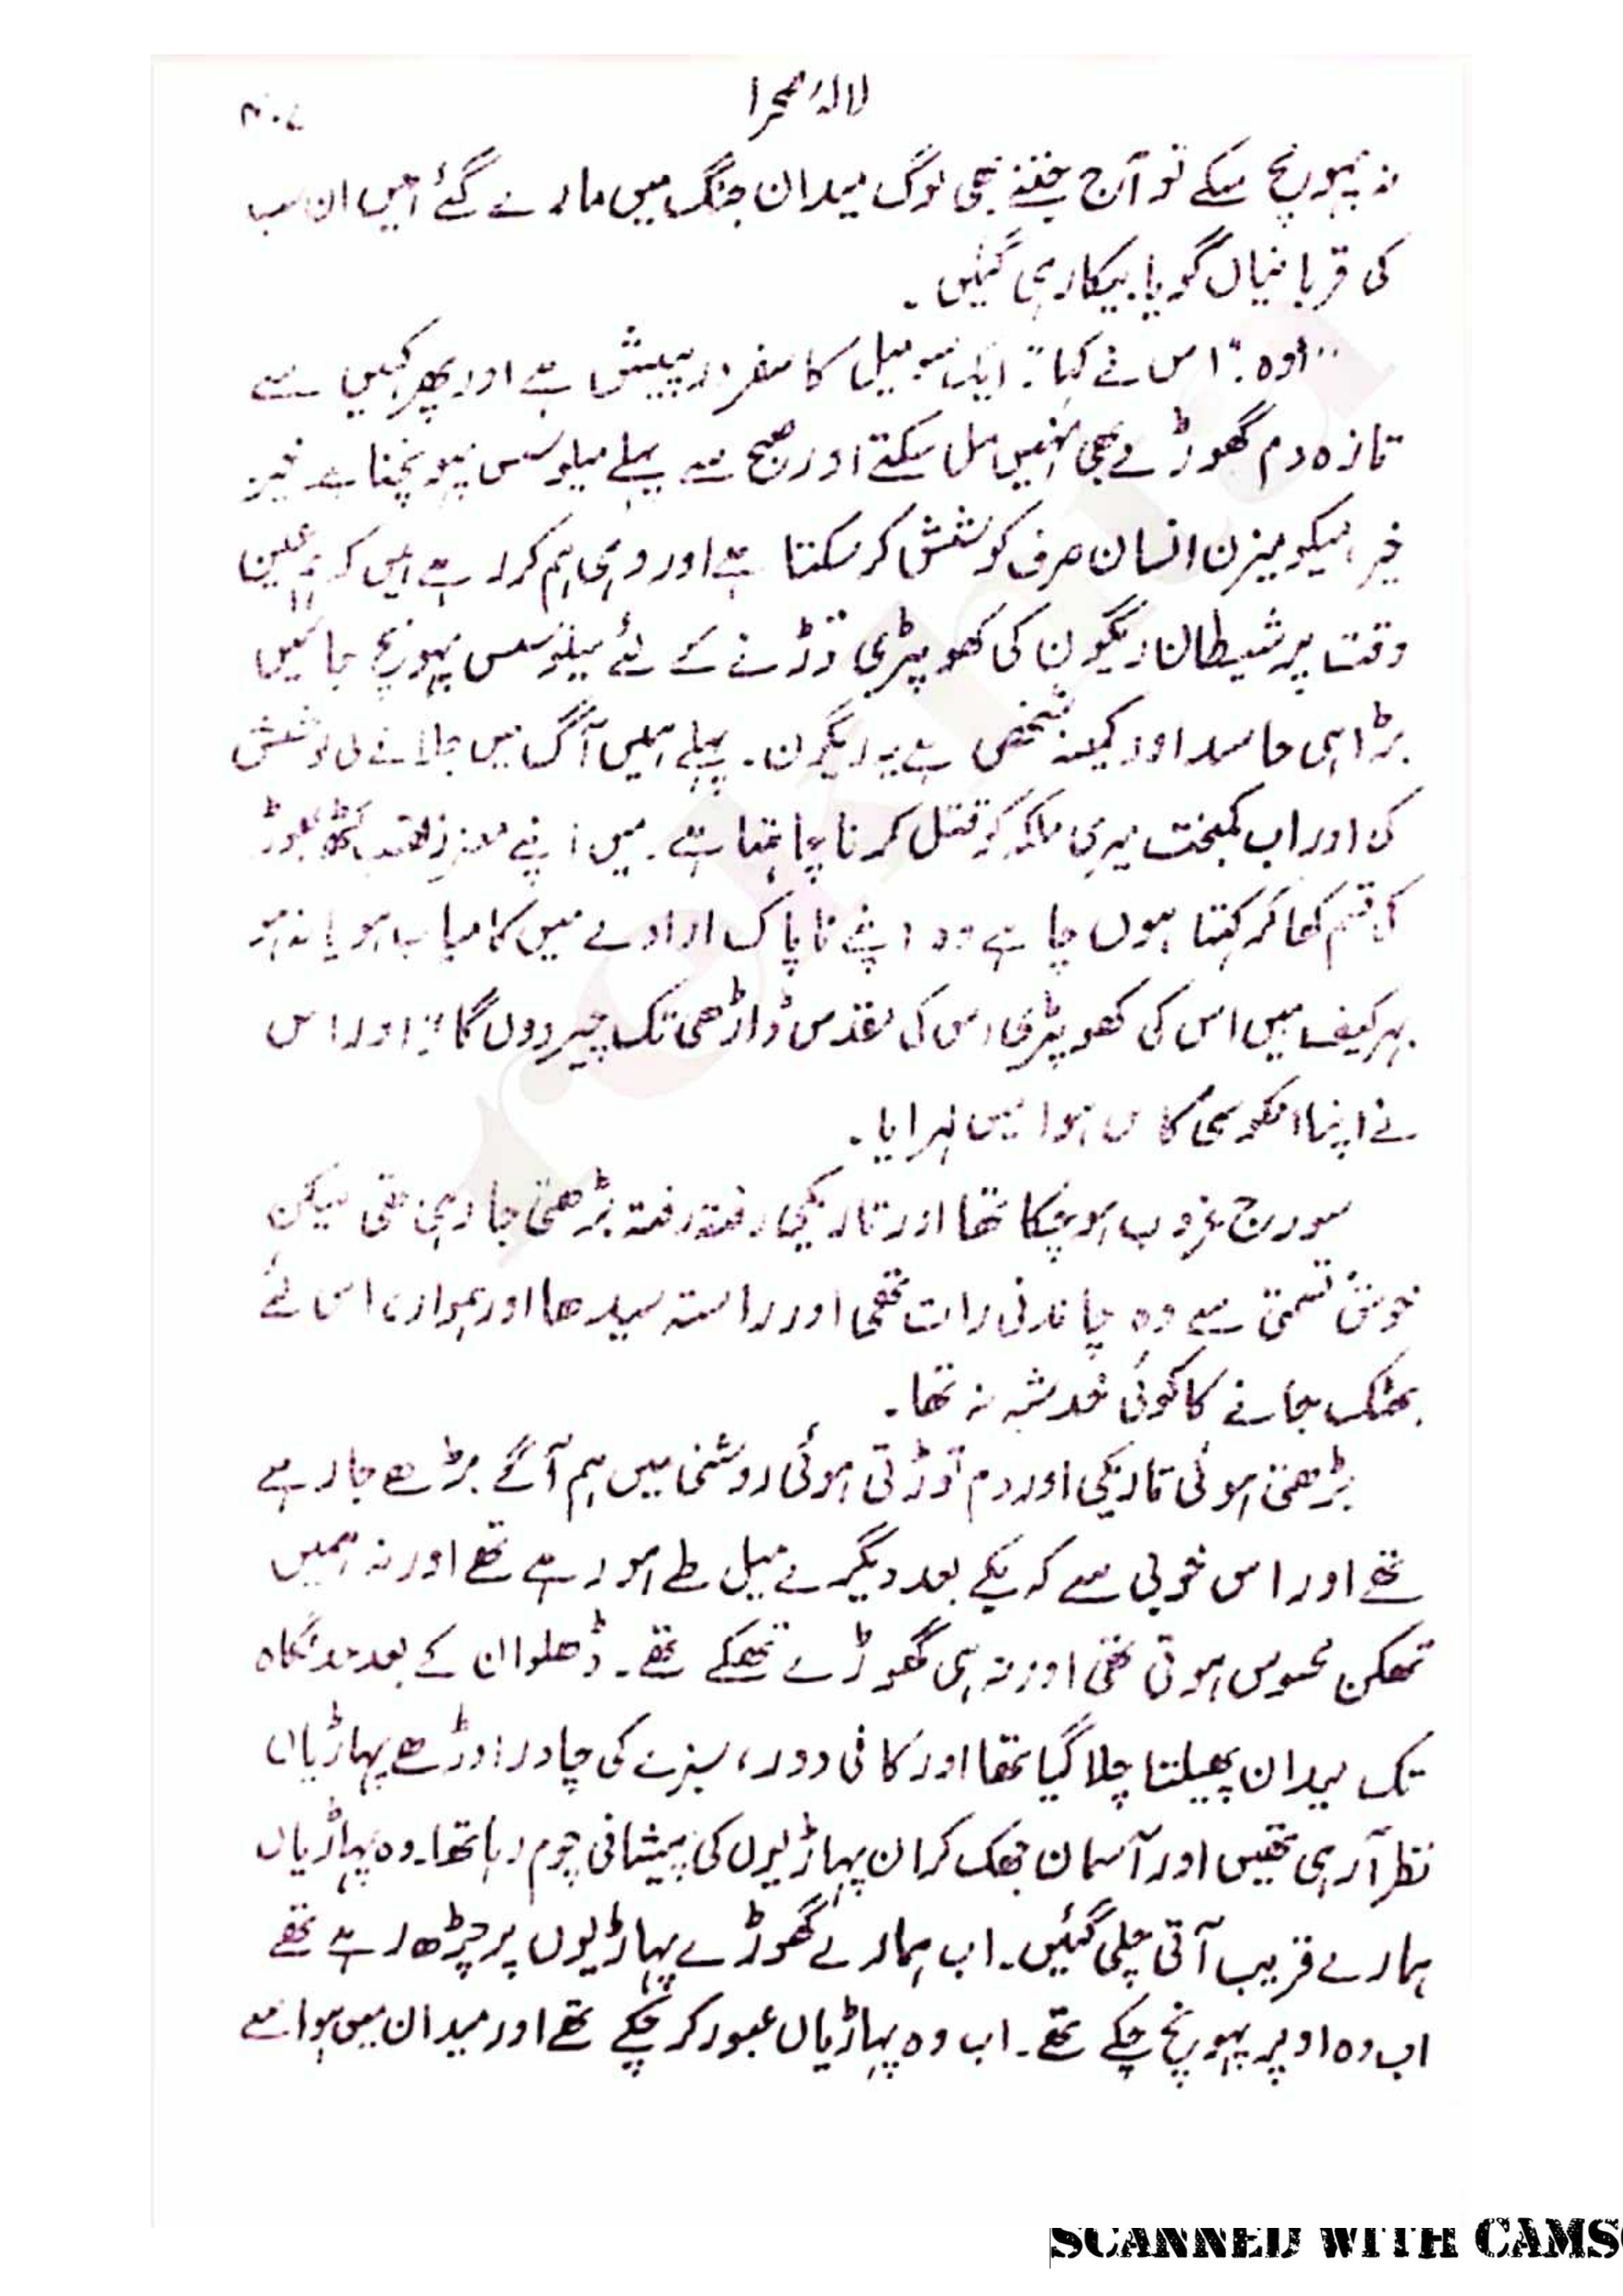 لالۂ صحرا
۴۰۷
نہ پہونچ سکے تو آج جتنے بھی لوگ میدان جنگ میں مارے گئے ہیں ان سب
کی قربانیاں گویا بیکار ہی گئیں۔
"اوہ۔" اس نے کہا: ایک سو میل کا سفر درپیش ہے اور پھر کہیں سے
تازہ دم گھوڑے بھی نہیں مل سکتے اور صبح سے پہلے میلوسس پہونچنا ہے خیر
خیر، میکومیزن انسان صرف کوشش کر سکتا ہے اور وہی ہم کر رہے ہیں کہ عین
وقت پر شیطان ریگون کی کھوپڑی توڑنے کے لئے میلوسس پہونچ جائیں
بڑا ہی حاسد اور کمینہ شخص ہے یہ ریگون۔ پہلے ہمیں آگ میں جلانے کی کوشش
کی اور اب کمبخت میری ملکہ کو قتل کرنا چاہتا ہے۔ میں اپنے معزز لقب کٹھ پھوڑ
کی قسم کھا کر کہتا ہوں چاہے وہ اپنے ناپاک ارادے میں کامیاب ہو یا نہ ہو
بہرکیف میں اس کی کھوپڑی اس کی مقدس ڈاڑھی تک چیر دوں گا"۔ اور اس
نے اپنا انکوسی کاس ہوا میں لہرایا۔
سورج غروب ہو چکا تھا اور تاریکی رفتہ رفتہ بڑھتی جا رہی تھی لیکن
خوش قسمتی سے وہ چاندنی رات تھی اور راستہ سیدھا اور ہموار، اس لئے
بھٹک جانے کا کوئی خدشہ نہ تھا۔
بڑھتی ہوئی تاریکی اور دم توڑتی ہوئی روشنی میں ہم آگے بڑھے جا رہے
تھے اور اس خوبی سے کہ یکے بعد دیگرے میل طے ہو رہے تھے اور نہ ہمیں
تھکن محسوس ہوتی تھی اور نہ ہی گھوڑے تھکے تھے۔ ڈھلوان کے بعد حد نگاہ
تک میدان پھیلتا چلا گیا تھا اور کافی دور، سبزے کی چادر اوڑھے پہاڑیاں
نظر آ رہی تھیں اور آسمان جھک کر ان پہاڑیوں کی پیشانی چوم رہا تھا۔ وہ پہاڑیاں
ہمارے قریب آتی چلی گئیں۔ اب ہمارے گھوڑے پہاڑیوں پر چڑھ رہے تھے
اب وہ اوپر پہونچ چکے تھے۔ اب وہ پہاڑیاں عبور کر چکے تھے اور میدان میں ہوا سے
rekhta
SCANNED WITH CAMS